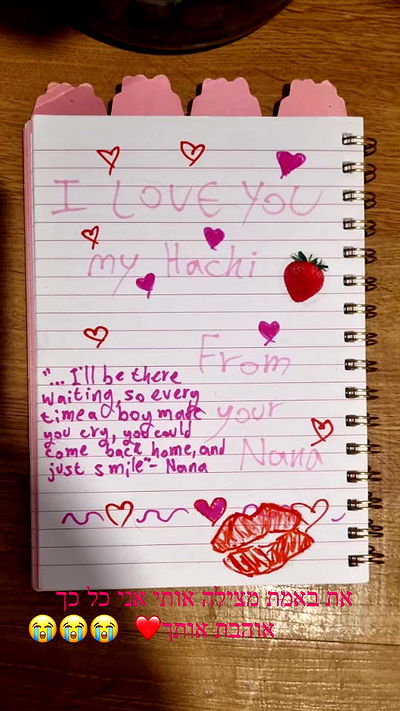 I LOVE YOU
my Hachi
From
your
Nana
"... I'll be there
waiting, so every
time a boy made
you cry, you could
come back home, and
just smile" - Nana
את באמת מצילה אותי אני כל כך
אוהבת אותך ❤️ 😭😭😭